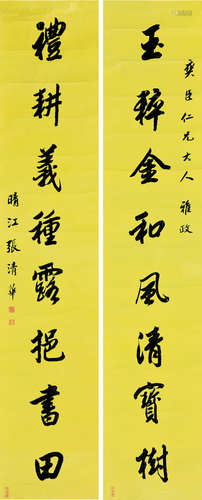 臣仁兄大人 雅政
玉粹金和風清寶樹
禮耕義種露挹書田
晴江張清華